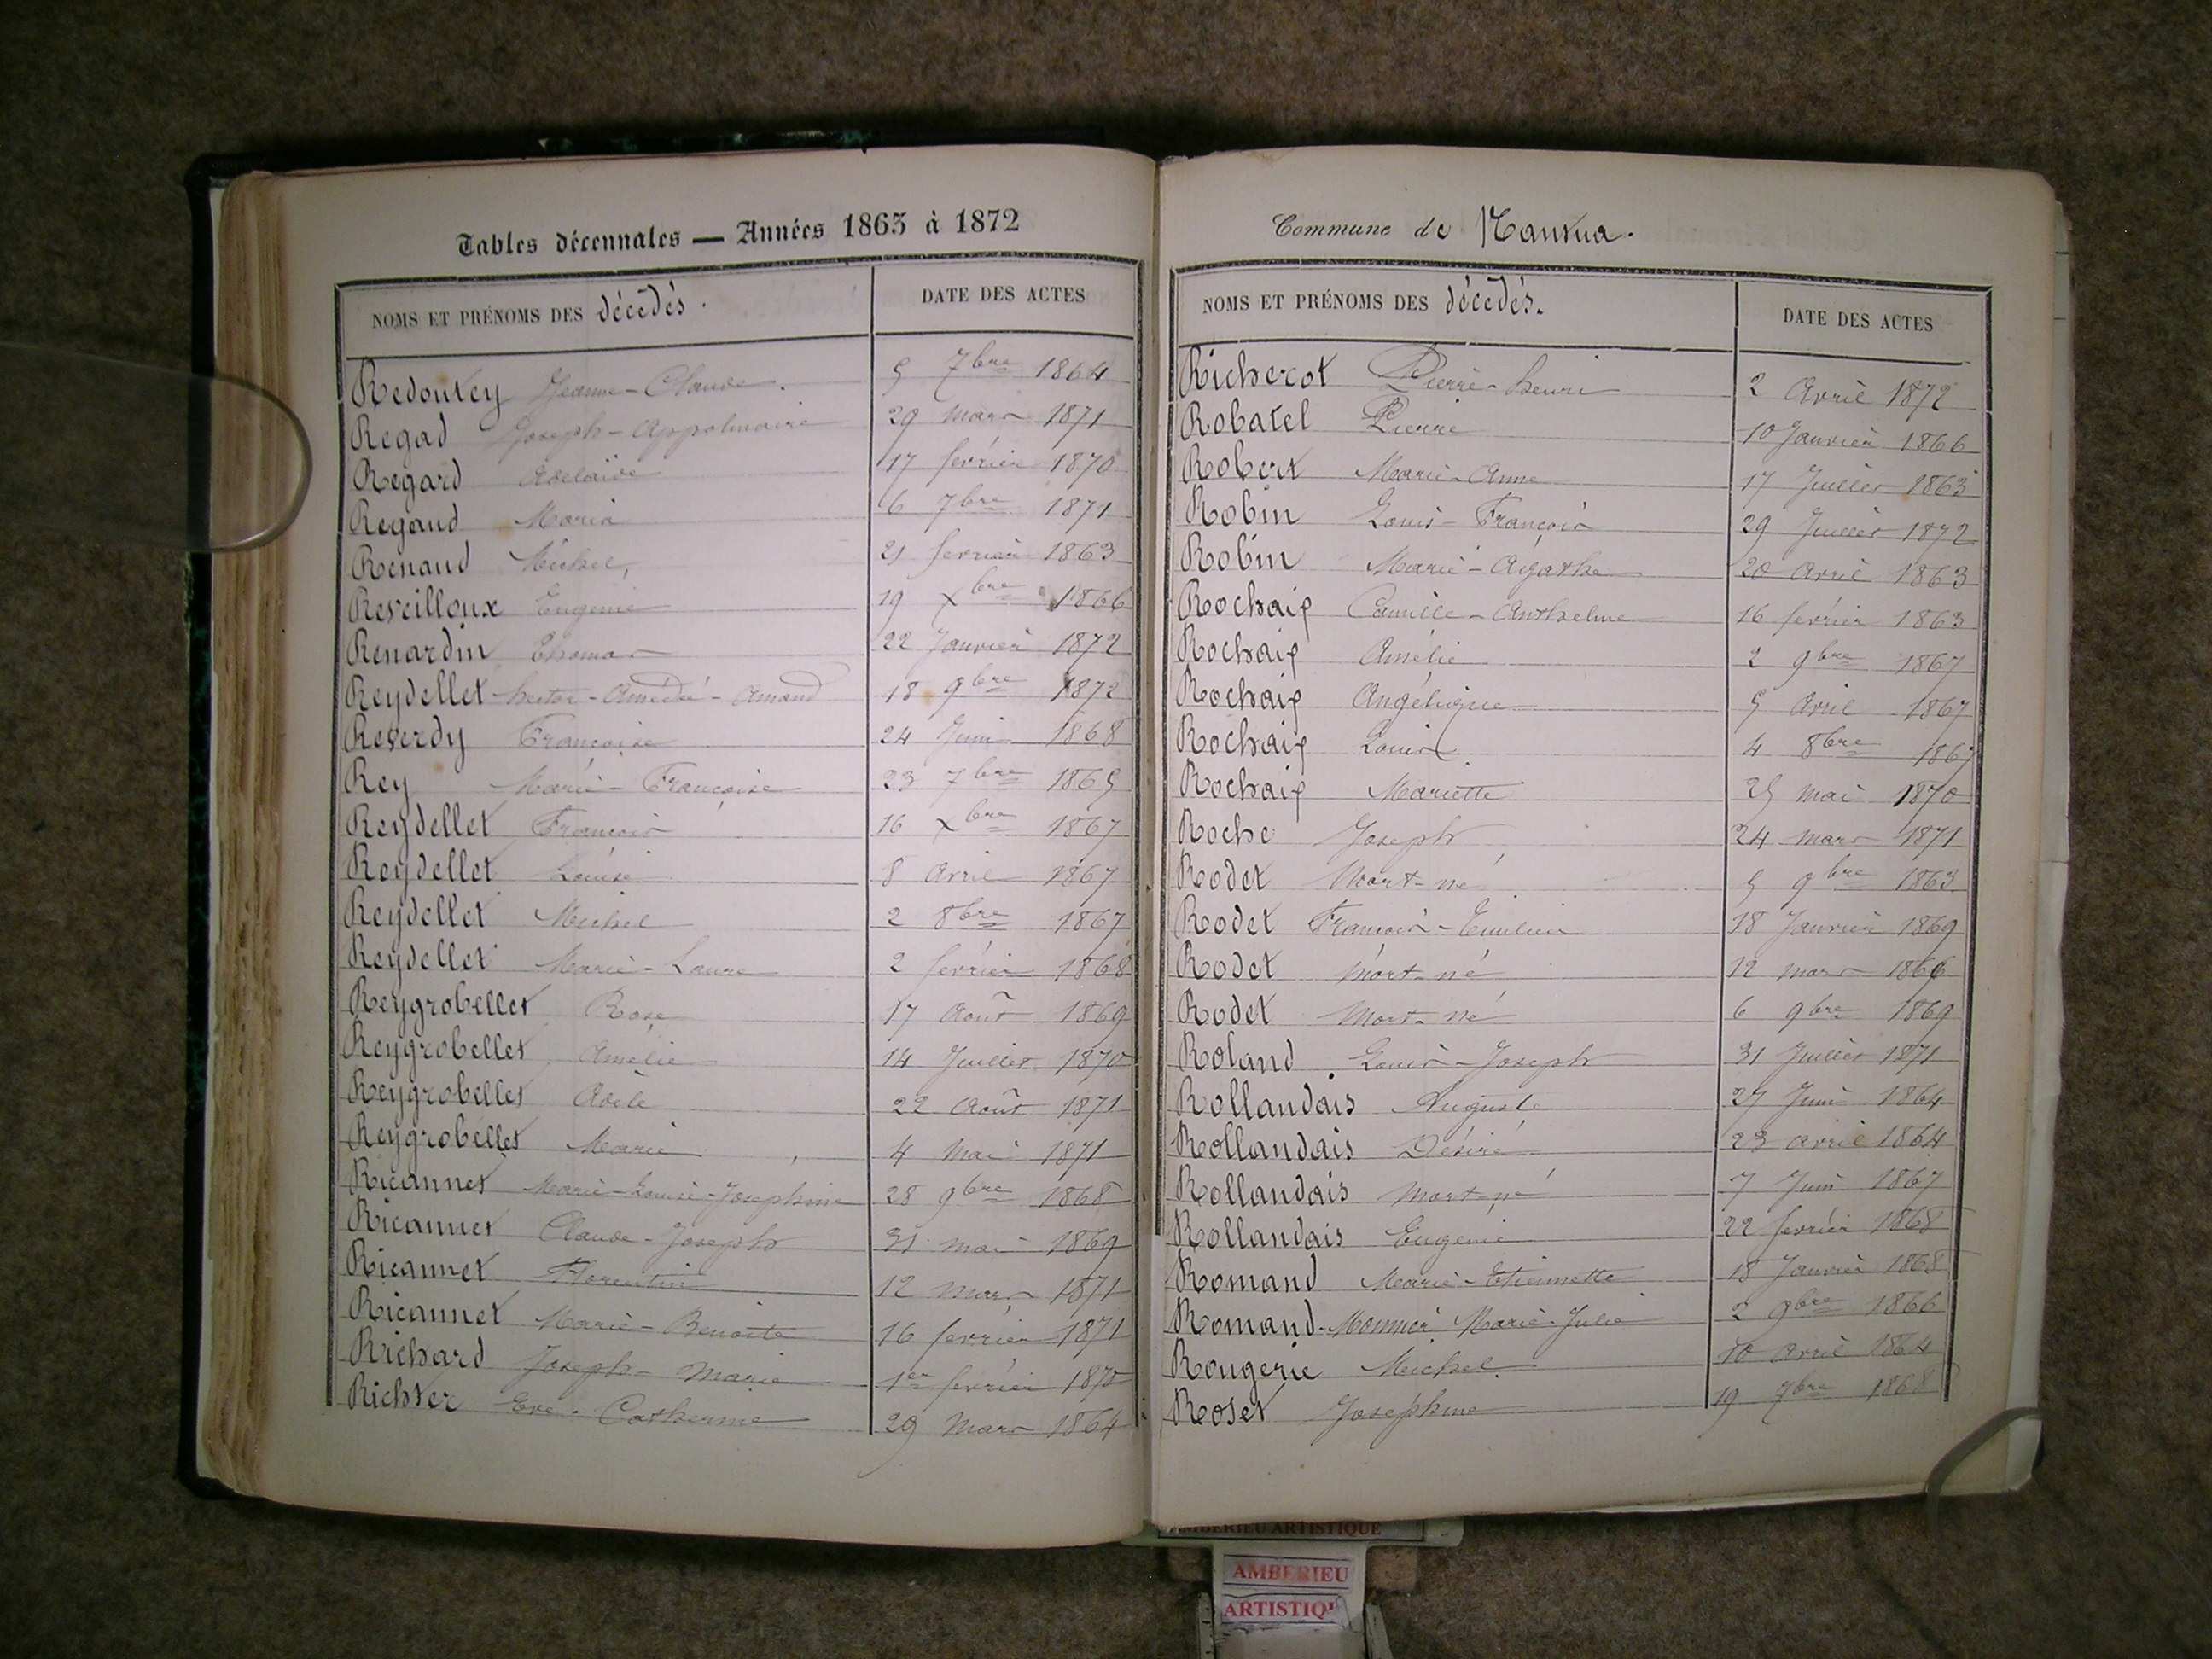 Tables décennales — Années 1863 à 1872
NOMS ET PRÉNOMS DES décédés. DATE DES ACTES
Redoutey Jeanne-Claude. 5 7bre 1864
Regad Joseph-Appolinaire 29 mars 1871
Regard Adelaïde 17 février 1870
Regaud Maria 6 7bre 1871
Renaud Michel, 21 février 1863
Reveilloux Eugenie 19 Xbre 1866
Renardin Thomas 22 Janvier 1872
Reydellet hector-Amédée-Amand 18 9bre 1872
Reverdy Françoise 24 Juin 1868
Rey Marie-Françoise 23 7bre 1865
Reydellet François 16 Xbre 1867
Reydellet Louise 8 avril 1867
Reydellet Michel 2 8bre 1867
Reydellet Marie-Laure 2 février 1868
Reygrobellet Rose 17 Août 1869
Reygrobellet Amélie 14 Juillet 1870
Reygrobellet Adèle 22 Août 1871
Reygrobellet Marie 4 mai 1871
Ricannet Marie-Louise-Josephine 28 9bre 1868
Ricannet Claude-Joseph 31 mai 1869
Ricannet Florentin 12 mars 1871
Ricannet Marie-Benoite 16 février 1871
Richard Joseph-Marie 1er février 1870
Richter Eve-Catherine 29 Mars 1864
Commune de Nantua.
NOMS ET PRÉNOMS DES décédés. DATE DES ACTES
Richerot Pierre-henri 2 Avril 1872
Robatel Pierre 10 Janvier 1866
Robert Marie-Anne 17 Juillet 1863
Robin Louis-François 29 Juillet 1872
Robin Marie-Agathe 20 avril 1863
Rochaix Camille-Anthelme 16 février 1863
Rochaix Amélie 2 9bre 1867
Rochaix Angélique 5 avril 1867
Rochaix Louis 4 8bre 1867
Rochaix Mariette 25 mai 1870
Roche Joseph 24 mars 1871
Rodet Mort-né 5 9bre 1863
Rodet François-Emilien 18 Janvier 1869
Rodet mort-né 12 mars 1866
Rodet Mort-né 6 9bre 1869
Roland Louis-Joseph 31 Juillet 1871
Rollandais Auguste 27 Juin 1864
Rollandais Désiré 23 avril 1864
Rollandais mort-né 7 Juin 1867
Rollandais Eugénie 22 février 1868
Romand Marie-Etiennette 18 Janvier 1868
Romand-Monnier Marie-Julie 2 9bre 1866
Rougerie Michel 10 avril 1864
Roset Joséphine 19 7bre 1868
AMBERIEU ARTISTIQUE
AMBERIEU
ARTISTIQU